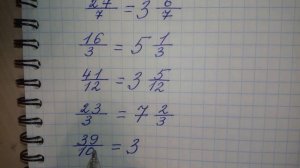 27/7 = 3 6/7
16/3 = 5 1/3
41/12 = 3 5/12
23/3 = 7 2/3
39/10 = 3